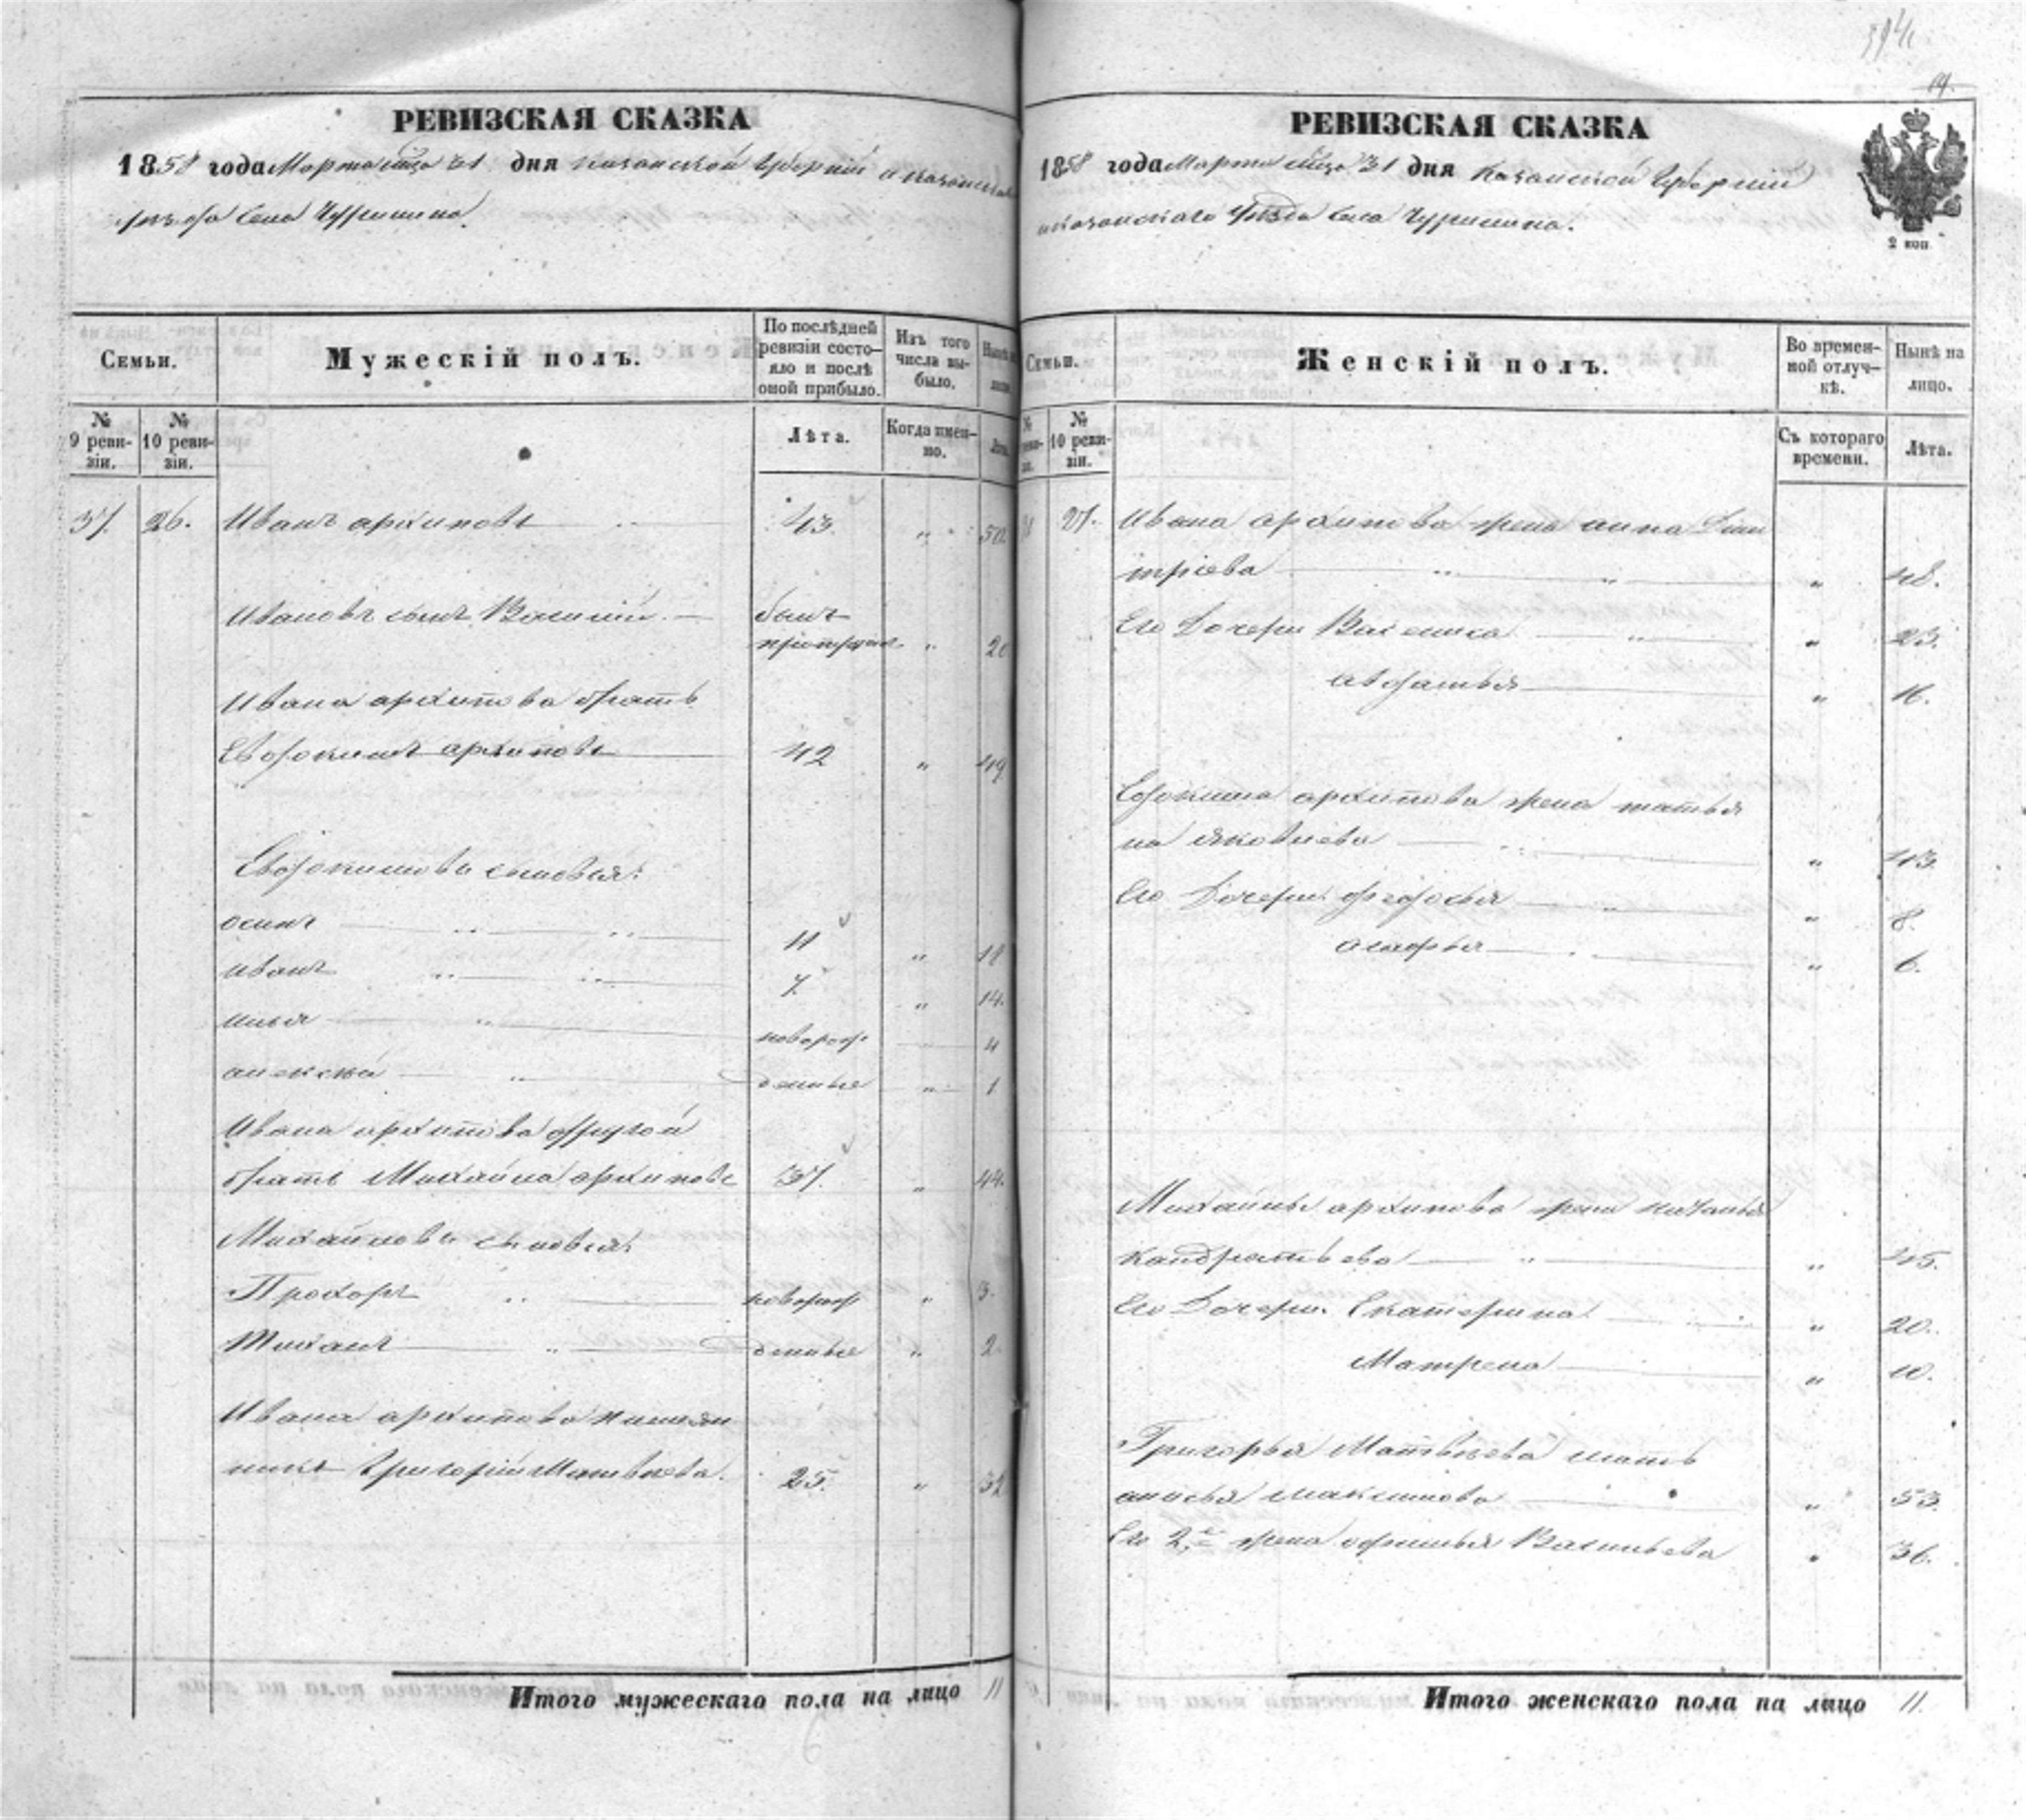 РЕВИЗСКАЯ СКАЗКА
1858 года Марта мѣца 31 дня Казанской Губерніи и Казанскаго
уѣзда Села Чурилина.
Семьи.
Мужескій полъ.
По послѣдней ревизіи состояло и послѣ оной прибыло.
Изъ того числа выбыло.
Нынѣ на лицо.
№ 9 ревизіи.
№ 10 ревизіи.
Лѣта.
Когда именно.
Лѣта.
37. 26. Иванъ архиповъ 43. " 50.
Ивановъ сынъ Василій былъ
" 20
Ивана архипова братъ
Евдокимъ архиповъ 42 " 49
Евдокимовы сыновья:
осипъ 11 " 18
иванъ 7. " 14.
илья новорож 4
алексѣй денные " 1
Ивана архипова другой
братъ Михайла архиповъ 37. " 44.
Михайловы сыновья:
Прохоръ новорож " 3.
Тиханъ денные " 2.
Ивана архипова племян
никъ Григорій Матвѣева. 25. " 32
Итого мужескаго пола на лицо 11
394
РЕВИЗСКАЯ СКАЗКА
1858 года Марта мѣца 31 дня Казанской Губерніи
и Казанскаго Уѣзда Села Чурилина.
2 коп
Семьи.
Женскій полъ.
Во временной отлучкѣ.
Нынѣ на лицо.
№ 10 ревизіи.
Съ котораго времени.
Лѣта.
27. Ивана архипова жена анна Дми
тріева " 48.
Его Дочери Василиса " 23.
авдатья " 16.
Евдокима архипова жена татья
на яковлева " 43.
Его Дочери федосья " 8.
" 6.
Михайлы архипова жена наталья
кандратьева " 45.
Его Дочери Екатерина " 20.
Матрена " 10.
Григорья Матвѣева мать
анисья максимова " 53.
Его 2я жена офимья Васильева " 36.
Итого женскаго пола на лицо 11.